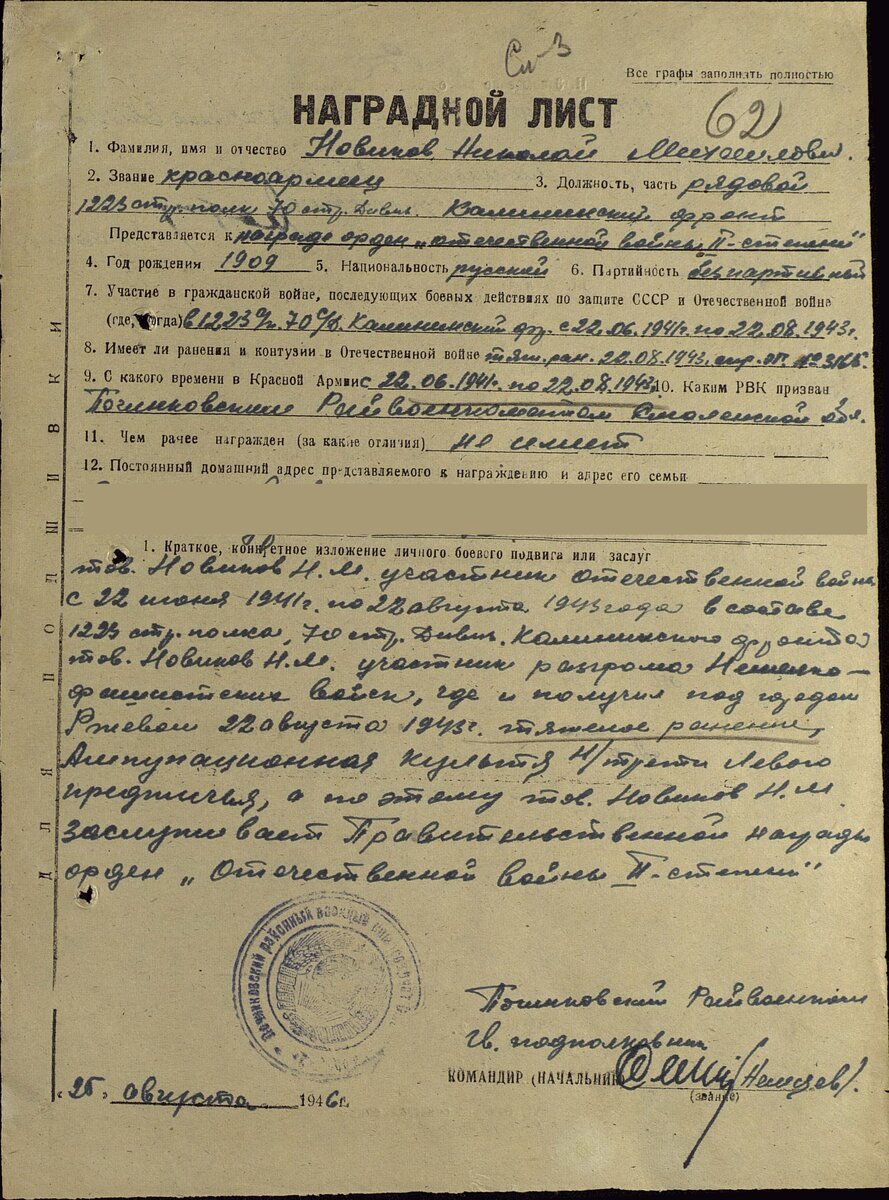 Сп 3
Все графы заполнять полностью
НАГРАДНОЙ ЛИСТ
62
1. Фамилия, имя и отчество Новиков Николай Михайлович.
2. Звание красноармеец 3. Должность, часть рядовой
1223 стр. полк 70 стр. Дивиз. Калининский фронт
Представляется к награде орден „Отечественной войны II-степени"
4. Год рождения 1909 5. Национальность русский 6. Партийность беспартийный
7. Участие в гражданской войне, последующих боевых действиях по защите СССР и Отечественной войне
(где, когда) в 1223 с/п. 70 с/д. Калининский фр. с 22.06.1941г. по 22.08.1943г.
8. Имеет ли ранения и контузии в Отечественной войне тяж. ран. 22.08.1943.
9. С какого времени в Красной Армии с 22.06.1941г. по 22.08.1943г. 10. Каким РВК призван
Починковским Райвоенкоматом Смоленской обл.
11. Чем ранее награжден (за какие отличия) не имеет
12. Постоянный домашний адрес представляемого к награждению и адрес его семьи
1. Краткое, конкретное изложение личного боевого подвига или заслуг
тов. Новиков Н.М. участник отечественной войны
с 22 июня 1941г. по 22 августа 1943 года в составе
1223 стр. полка, 70 стр. Дивиз. Калининского фронта
тов. Новиков Н.М. участник разгрома Немецко-
фашистских войск, где и получил под городом
Ржевом 22 августа 1943г. тяжелое ранение,
Ампутационная культя н/трети Левого
предплечья, а поэтому тов. Новиков Н.М.
заслуживает Правительственной награды
орден „Отечественной войны II-степени"
ДЛЯ ПОДШИВКИ
Починковский районный военный комиссариат
Починковский Райвоенком
гв. подполковник
КОМАНДИР (НАЧАЛЬНИК)
(звание)
„25" августа 1946г.